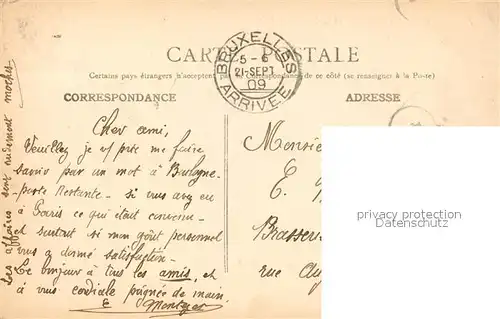 CARTE POSTALE
BRUXELLES
5-6
21-SEPT
09
ARRIVEE
Certains pays étrangers n'acceptent pas de correspondance de ce côté (se renseigner à la Poste)
CORRESPONDANCE
ADRESSE
Cher ami,
Veuillez je v/ prie me faire
savoir par un mot à Boulogne
- poste Restante - si vous avez eu
à Paris ce qui était convenu -
et surtout si mon goût personnel
vous a donné satisfaction -
Le bonjour à tous les amis, et
à vous cordiale poignée de main.
E
Les affaires sont rudement moches
Monsieur
E.
Brasser
rue
privacy protection
Datenschutz